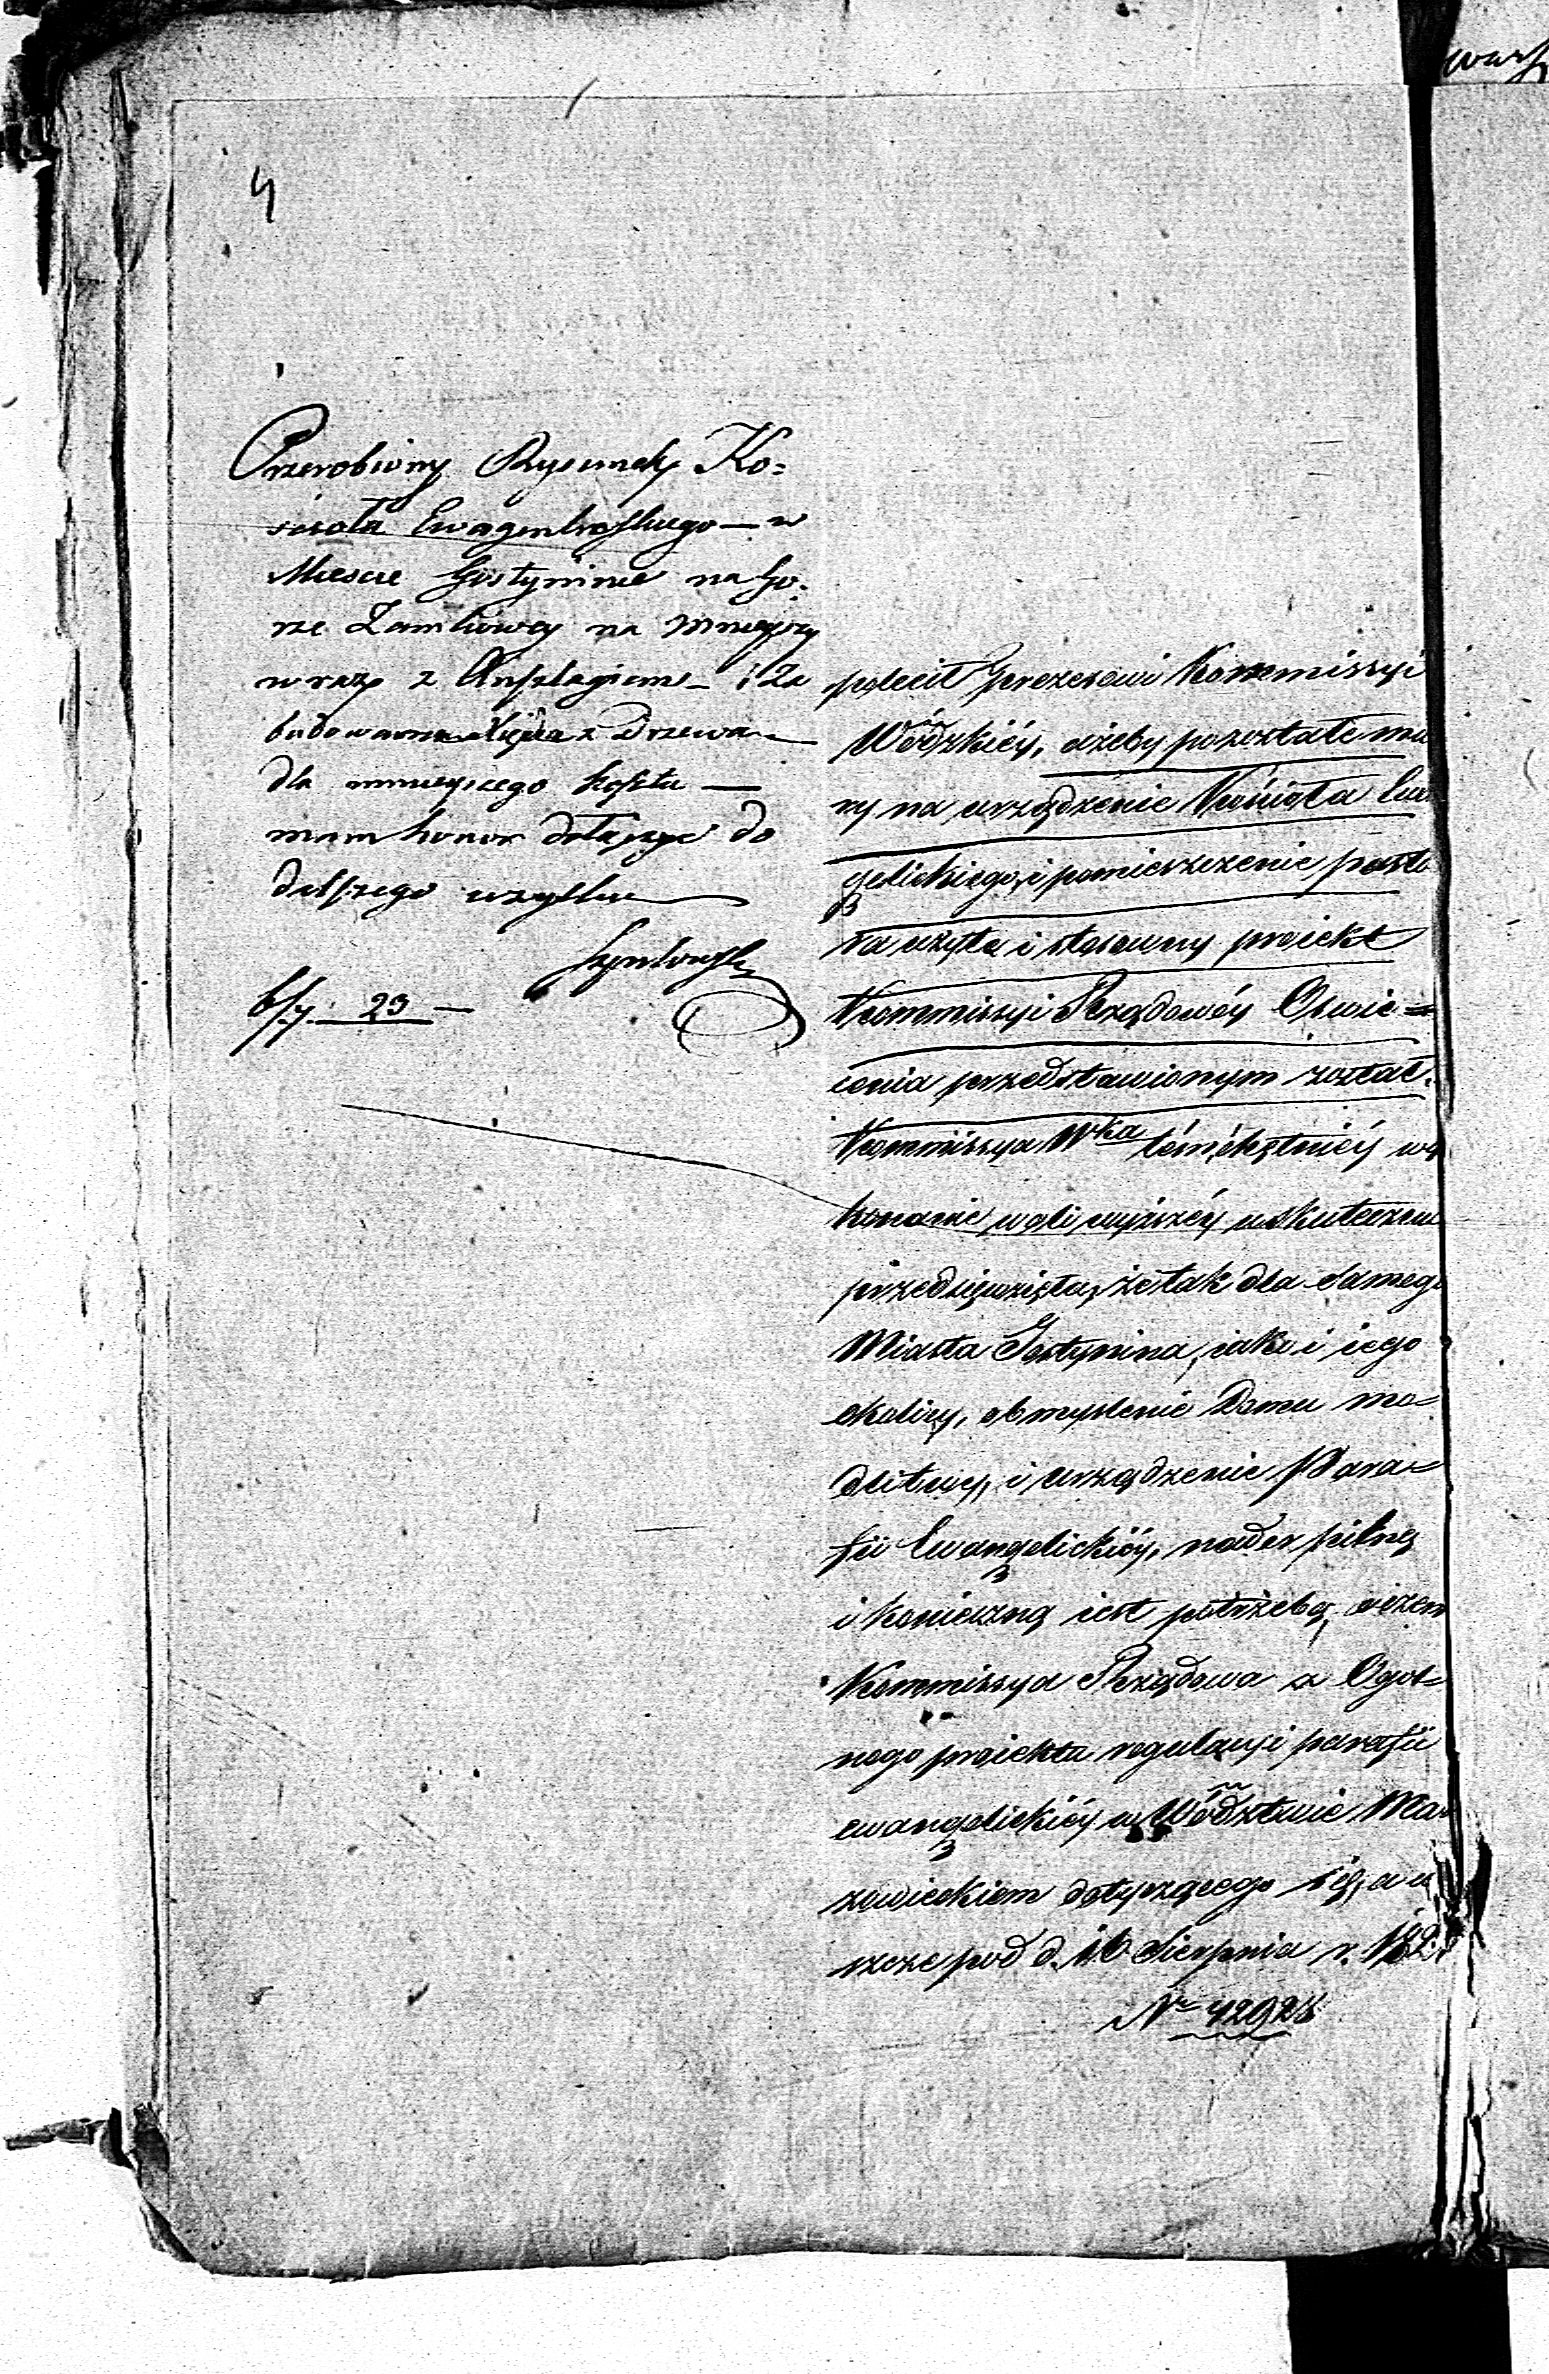 4
Przerobiony Rysunek Ko-
scioła Ewangelickiego — w
Miescie Gostyninie na Gó-
rze Zamkowey na mnieyszy
wraz z Anszlagiem — i Za
budowania Xiędza z Drzewa —
dla mnieyszego kosztu —
mam honor dołączyć do
dalszego użytku —
6/7. 23 —
polecił Prezesowi Kommissyi
Wódzkiéy, ażeby pozostałe mu
ry na urządzenie Kościoła Ewa
gelickiego, i pomieszczenie pasto
ra użyte i stosowny proiekt
Kommissyi Rządowéy Oświe=
cenia przedstawionym został.
Kommissya Wka tém chętniéy wy
konanie woli wyższéy uskuteczni
przedsięwzięła, że tak dla samego
Miasta Gostynina, iako i iego
okolicy, obmyslenie Domu mo=
dlitwy, i urządzenie Para=
fii Ewangelickiéy, nader pilną
i konieczną iest potrzebą, o czem
Kommissya Rządowa z Ogól=
nego proiektu regulacyi parafii
ewangelickiéy w Wództwie Ma
zowieckiem dotyczącego się, a ie
szcze pod d. 16 Sierpnia r. 182
Nr 42928
wars